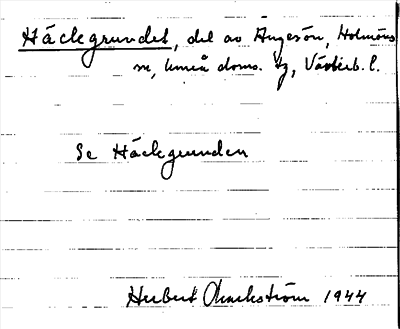 Häckgrundet, del av Ängesön, Holmöns
sn, Umeå doms. tg, Västerb. l.
Se Häckgrunden
Herbert Markström 1944